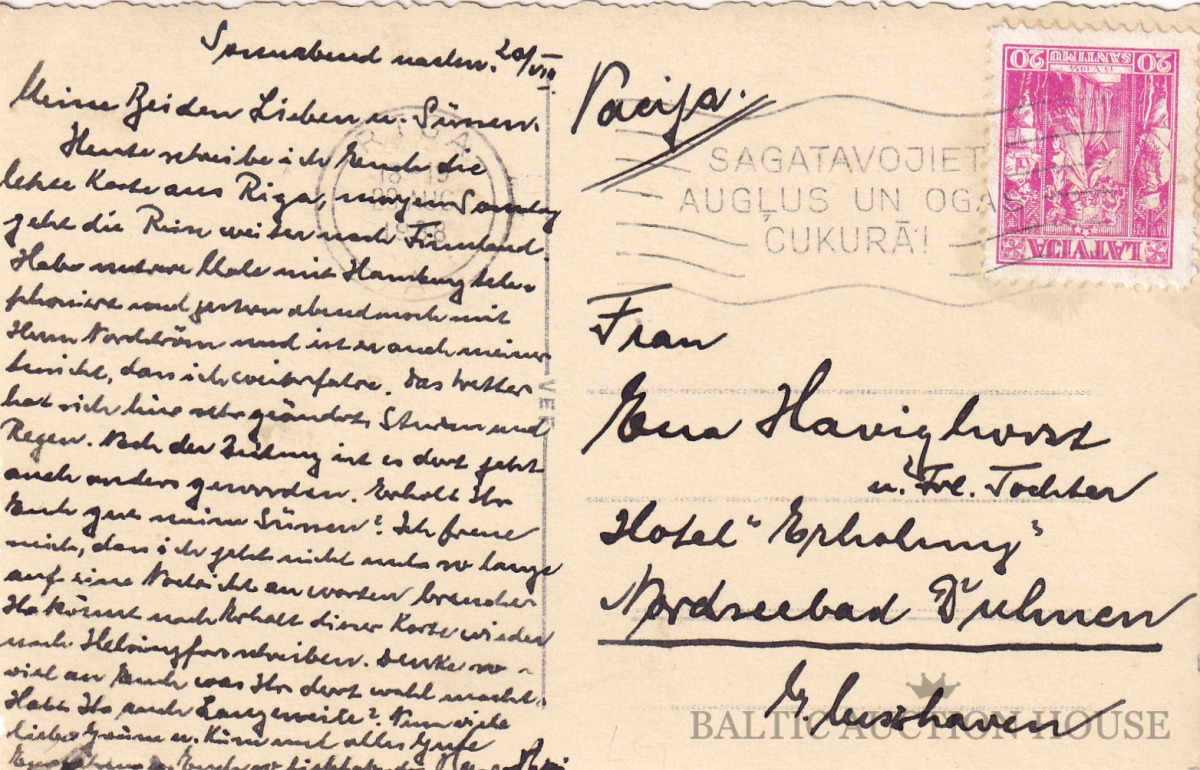 Sonnabend nachm. 20/VIII.
Meine Beiden Lieben u. Süssen.
Heute schreibe ich Euch die
letzte Karte aus Riga, morgen Sonntag
geht die Reise weiter nach Finnland.
Habe mehrere Male mit Hamburg tele-
phoniert und gestern abend noch mit
Herrn Nordström und ist er auch meiner
Ansicht, dass ich weiterfahre. Das Wetter
hat sich hier sehr geändert, Sturm und
Regen. Nach der Zeitung ist es dort jetzt
auch anders geworden. Erholt Ihr
Euch gut meine Süssen? Ich freue
mich, dass ich jetzt nicht mehr so lange
auf eine Nachricht zu warten brauche.
Ihr könnt nach Erhalt dieser Karte wieder
nach Helsingfors schreiben. Denke so-
viel an Euch was Ihr dort wohl macht.
Habt Ihr auch Langeweile? Nun viele
liebe Grüsse u. Küsse und alles Gute
Euch
VER
Vacija.
RIGA
AUG
1938
SAGATAVOJIET
AUGĻUS UN OGAS
CUKURĀ!
20 SANTIMU 20
LATVIJA
Frau
Ena Havighorst
u. Frl. Tochter
Hotel "Erholung"
Nordseebad Duhnen
b/ Cuxhaven
BALTIC AUCTION HOUSE